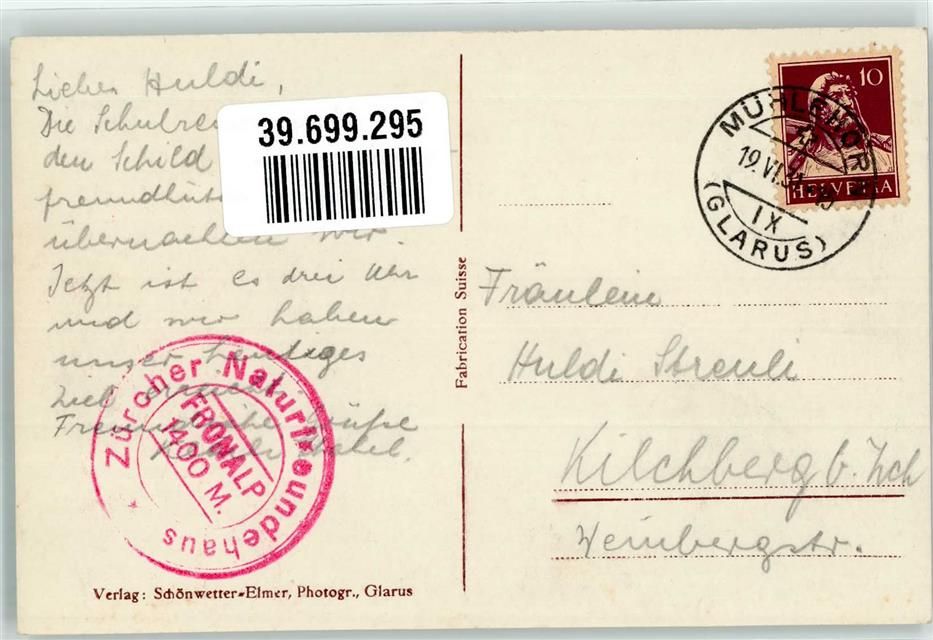 Liebes Huldi,
Die Schulre
den Schild
freundlich
übernachten wir.
Jetzt ist es drei Uhr
und wir haben
unser heutiges
Ziel
Freundliche Grüße
39.699.295
Zürcher Naturfreundehaus
FRONALP
1400 M.
Verlag: Schönwetter-Elmer, Photogr., Glarus
Fabrication Suisse
10
HELVETIA
MÜHLEHORN
19.VI.31-15
IX
(GLARUS)
Fräulein
Huldi Streuli
Kilchberg b. Zch
Weinbergstr.